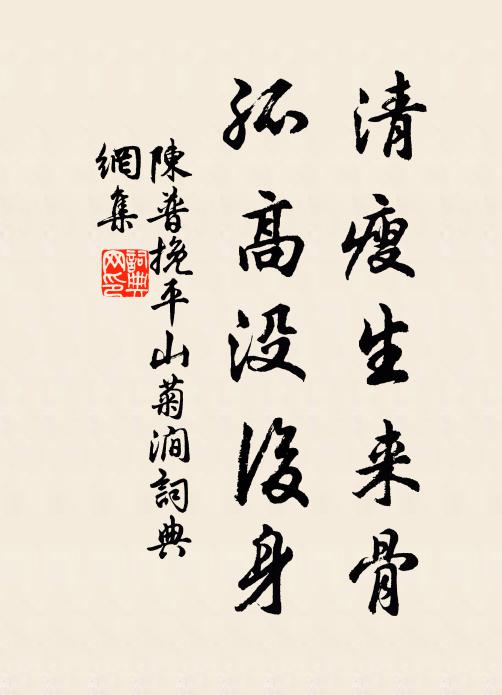 清瘦生来骨
孤高没後身
陳普挽平山菊澗詞典
網集
詞典网印